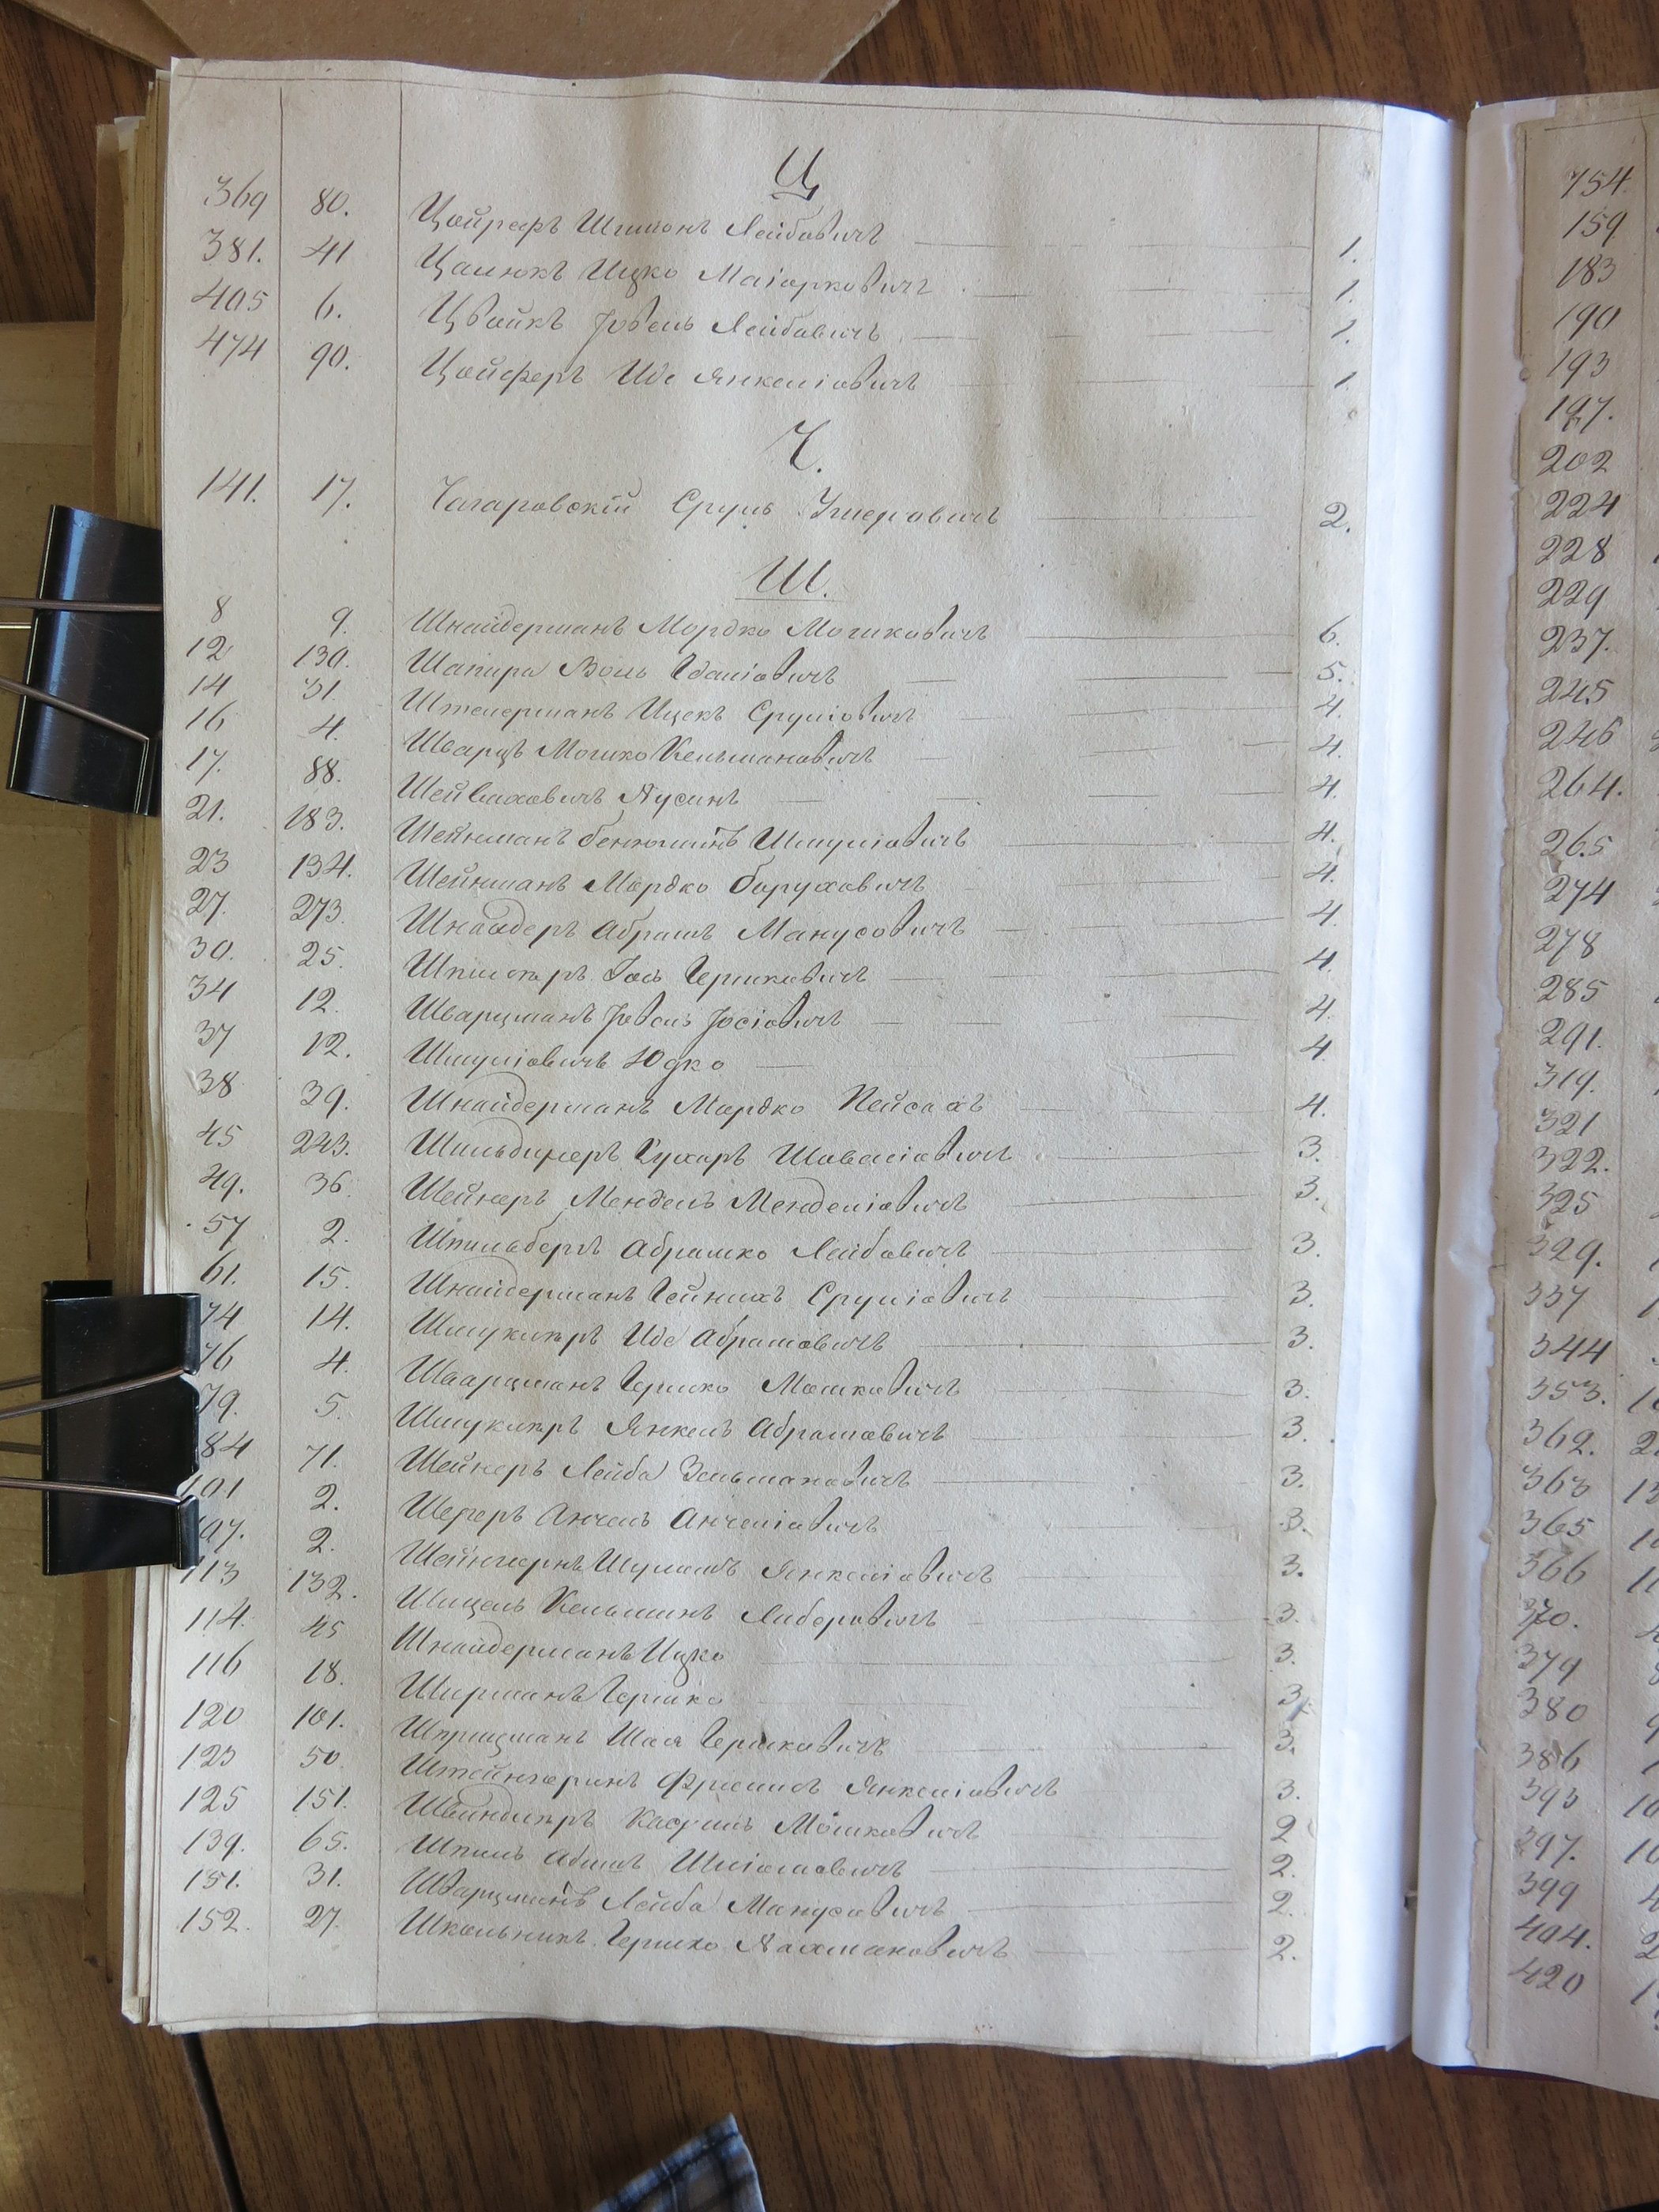 Ц
369 80. Цойрефъ Шимонъ Лейбовичъ 1.
381. 41 Цалюкъ Ицко Маіорковичъ 1.
405 6. Цвайкъ Іовель Лейбовичъ 1.
474 90. Цойферъ Иде Янкеліовичъ 1.
Ч.
141. 17. Чагаровскій Сруль Умеровичъ 2.
Ш.
8 9. Шнайдерманъ Мордко Мошковичъ 6.
12 130. Шапира Воль Гдаліовичъ 5.
14 31. Штелерманъ Ицекъ Сруліовичъ 4.
16 4. Шварцъ Мошко Кельмановичъ 4.
17. 88. Шейваховичъ Нусинъ 4.
21. 183. Шейнманъ Бенюминъ Шмуліовичъ 4.
23 134. Шейнманъ Мордко Боруховичъ 4.
27. 273. Шнайдеръ Абрамъ Манусовичъ 4.
30. 25. Іось Гершковичъ 4.
34 12. Шварцманъ Іовель Іосіовичъ 4.
37 12. Шмуліовичъ Юдко 4.
38 39. Шнайдерманъ Мордко Пейсахъ 4.
45 243. Шовеліовичъ 3.
49. 36. Шейнеръ Мендель Менделіовичъ 3.
57 2. Шпильбергъ Абрамко Лейбовичъ 3.
61. 15. Шнайдерманъ Гейнихъ Сруліовичъ 3.
74 14. Шмуклеръ Иде Абрамовичъ 3.
76 4. Шварцманъ Гершко Мошковичъ 3.
79. 5. Шмуклеръ Янкель Абрамовичъ 3.
84 71. Шейнеръ Лейба Зельмановичъ 3.
101 2. Шегеръ Анчель Анчеліовичъ 3.
107. 2. Шейнгорнъ Шулимъ Янкеліовичъ 3.
113 132. Кельманъ Либеровичъ 3.
114. 45 Шнайдерманъ Ицко 3.
116 18. Ширманъ Гершко 3.
120 101. Шая Гершковичъ 3.
123 50. Янкеліовичъ 3.
125 151. Мошковичъ 2
139. 65. Шпиль Абрамъ Шліомовичъ 2.
151. 31. Шварцманъ Лейба Манусовичъ 2.
152. 27. Школьникъ Гершко Нахмановичъ 2.
754.
159
183
190
193
197.
202
224
228
229
237.
245
246
264.
265
274
278
285
291.
319.
321
322.
325
329.
337
344
353.
362.
363
365
366
370.
379
380
386
393
397.
399
404.
420